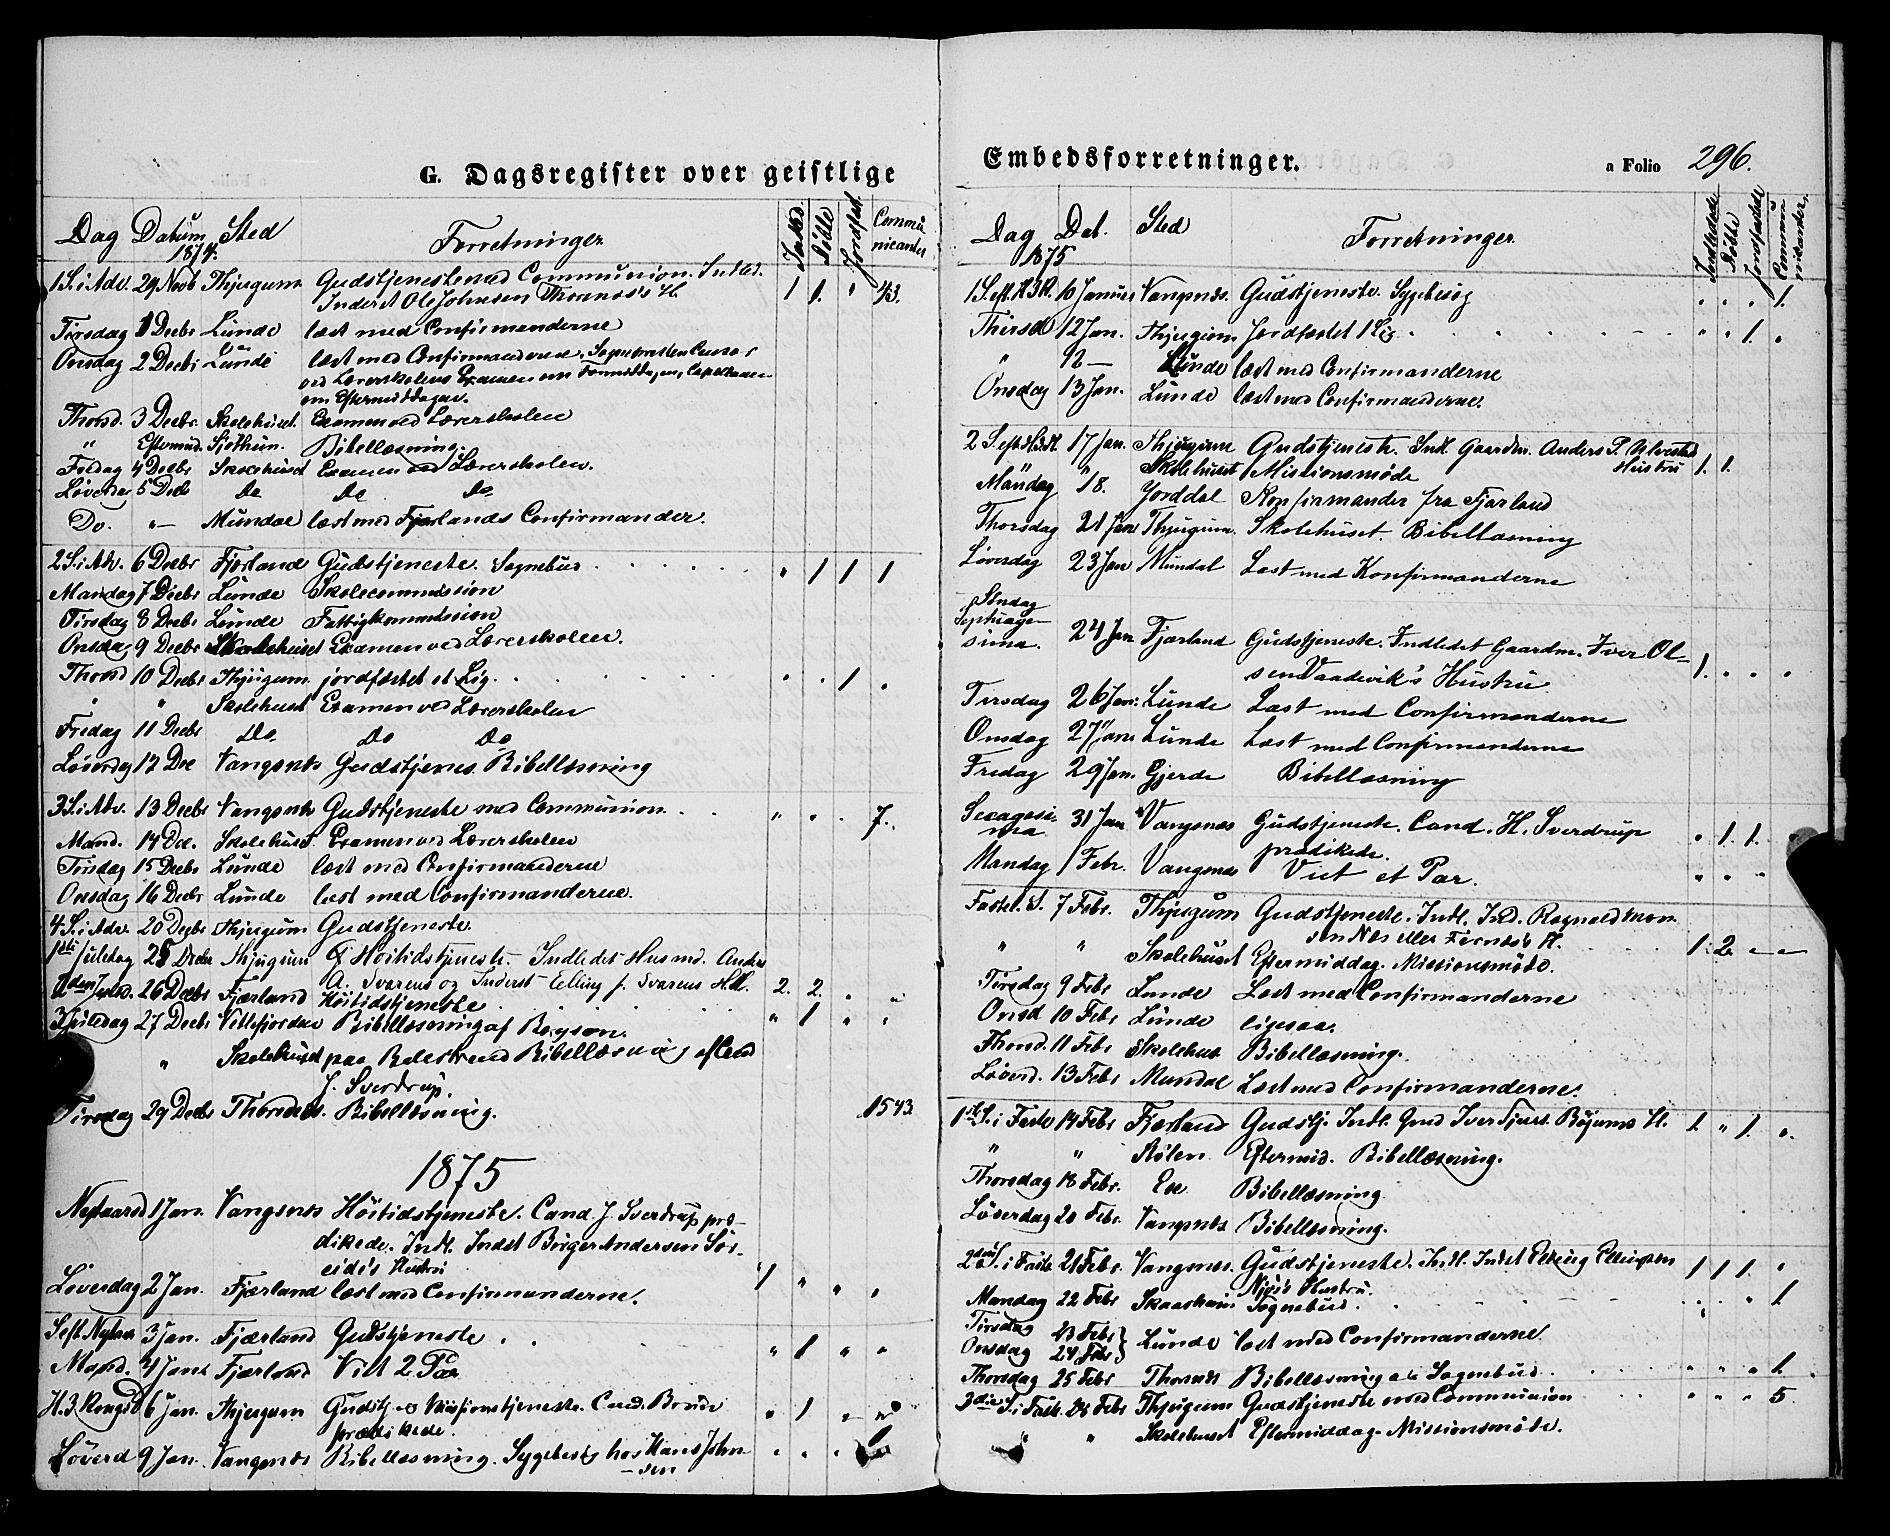 G. Dagsregister over geistlige
Dag Datum Sted Forretninger Indled. Døbte Jordfæst. Commu
nicanter
1874.
1 S. i Adv. 29 Novb Thjugum Gudstjeneste med Communion. Indled. 1 1. " 43.
Inderst Ole Johnsen Thorsnæs's H.
Tirsdag 1 Decbr Lunde læst med Confirmanderne
Onsdag 2 Decbr Lunde læst med Confirmanderne. Sognepresten Censor
ved Lærerskolens Examen om Formiddagen, Capellanen
om Eftermiddagen.
Thorsd. 3 Decbr Skolehuset Examen ved Lærerskolen
" Eftermid. Sjøthun. Bibellæsning.
Fredag 4 Decbr Skolehuset Examen ved Lærerskolen.
Løverda 5 Decb Do Do Do
Do. "— Mundal læst med Fjærlands Confirmander.
2 S. i Adv. 6 Decbr Fjærland Gudstjeneste. Sognebud " 1 1 1
Mandag 7 Decbr Lunde Skolecommission
Tirsdag 8 Decbr Lunde Fattigkommission
Onsdag 9 Decbr Skolehuset Examen ved Lærerskolen.
Thorsd 10 Decbr Thjugum jordfæstet et Lig. " " 1 "
" " Skolehuset Examen ved Lærerskolen
Fredag 11 Decbr Do Do Do
Løverdag 12 Dec Vangsnes Gudstjenes. Bibellæsning
3 S. i Adv. 13 Decbr Vangsnes Gudstjeneste med Communion " " " 7.
Mand. 14 Dec. Skolehuset Examen ved Lærerskolen
Tirsdag 15 Decbr Lunde læst med Confirmanderne
Onsdag 16 Decbr Lunde læst med Confirmanderne.
4 S. i Adv. 20 Decbr Thjugum Gudstjeneste.
1ste Juledag 25 Decbr Thjugum Høitidstjeneste – Indledet Husmd. Anders
A. Sværen og Inderst Elling J. Sværen's H. 2. 2. " "
2den Juled. 26 Decbr Fjærland Høitidstjeneste " 1 " "
3 Juledag 27 Decbr Vetlefjorden Bibellæsning af
" Skolehuset paa Balestrand Bibellæsning af Cand
J. Sverdrup.
Tirsdag 29 Decbr Thorsnæs. Bibellæsning. 1543.
1875
Nytaarsd 1 Jan. Vangsnes Høitidstjeneste. Cand J. Sverdrup præ-
dikede. Indl. Indst Børge Andersen Sør-
eide's Hustru 1 " " "
Løverdag 2 Jan. Fjærland læst med Confirmanderne.
S eft Nytaar 3 Jan. Fjærland Gudstjeneste " 1 " "
Mand. 4 Jan. Fjærland Viet 2 Par
H. 3 Kongers D 6 Jan. Thjugum Gudstj. og Missionstjeneste. Cand. Bonde
prædikede. " 1 " "
Løverd 9 Jan. Vangsnes Bibellæsning. Sygebesøg hos Hans John-
sen " " " 1
Embedsforretninger. a Folio 296.
Dag Dat. Sted Forretninger Indledede Døbte Jordfæstede Commu
nikanter
1875
1 S. eft. H3K. 10 Januar Vangsnes. Gudstjeneste. Sygebesøg " " " 1.
Thirsd 12 Jan. Thjugum Jordfæstet 1 Lig " " 1. "
" 12 — Lunde læst med Confirmanderne
Onsdag 13 Jan. Lunde læst med Confirmanderne.
2 S. eft H3K. 17 Jan. Thjugum Gudstjeneste. Indl. Gaardm. Anders P. Ulvestad
Hustru 1. 1.
" Skolehuset Missionsmøde
Mandag 18. Jorddal Konfirmander fra Fjærland
Thorsdag 21 Jan Thjugum Skolehuset. Bibellæsning
Løverdag 23 Jan Mundal Læst med Konfirmanderne
Søndag
Septuage-
sima. 24 Jan Fjærland Gudstjeneste. Indledet Gaardm. Iver Ol-
sen Vaadevik's Hustru 1. " " "
Tirsdag 26 Jan: Lunde Læst med Confirmanderne
Onsdag 27 Jan Lunde Læst med Confirmanderne
Fredag 29 Jan. Gjerde Bibellæsning
Sexagesi-
ma 31 Jan Vangsnes Gudstjeneste. Cand. H. Sverdrup
prædikede. " 1. 1. "
Mandag 1 Febr. Vangsnes Viet et Par. " " "
Fastel. S. 7 Febr. Thjugum Gudstjeneste. Indl. Ind. Ragnvald
sen Næs eller Fernæs's H. 1. 2. " "
" " Skolehuset Eftermiddag. Missionsmøde.
Tirsdag 9 Febr Lunde Læst med Confirmanderne
Onsd 10 Febr Lunde ligesaa.
Thorsd. 11 Febr Skolehus Bibellæsning.
Løverd. 13 Febr Mundal Læst med Confirmanderne.
1ste S. i Faste 14 Febr Fjærland Gudstj. Indl. Gmd Iver Bøjums H. 1. " 1. "
" " Eftermid. Bibellæsning.
Thorsdag 18 Febr. Ese Bibellæsning
Løverdag 20 Febr. Vangsnes Bibellæsning.
2den S. i Faste 21 Febr. Vangsnes. Gudstjeneste. Indl. Indst Ellingsen
Njøs's Hustru. 1 1 1. "
Mandag 22 Febr Sognebud. " " " 1
Tirsdag 23 Febr }
Onsdag 24 Febr } Lunde læst med Confirmanderne
Thorsdag 25 Febr Thorsnæs Bibellæsning og Sognebud " " " 1.
3die S. i Faste 28 Febr Thjugum Gudstjeneste med Communion " " " 5.
" " Skolehuset Eftermiddag. Missionsmøde.